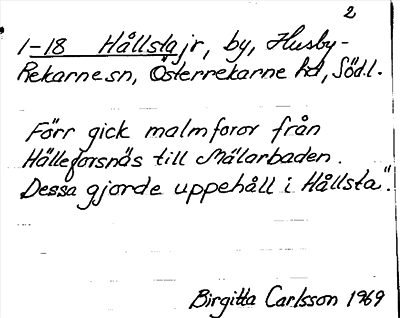 2
1-18 Hållsta jr, by, Husby-
Rekarne sn, Österrekarne hd, Södl.
Förr gick malmforor från
Hälleforsnäs till Mälarbaden.
Dessa gjorde uppehåll i Hållsta".
Birgitta Carlsson 1969